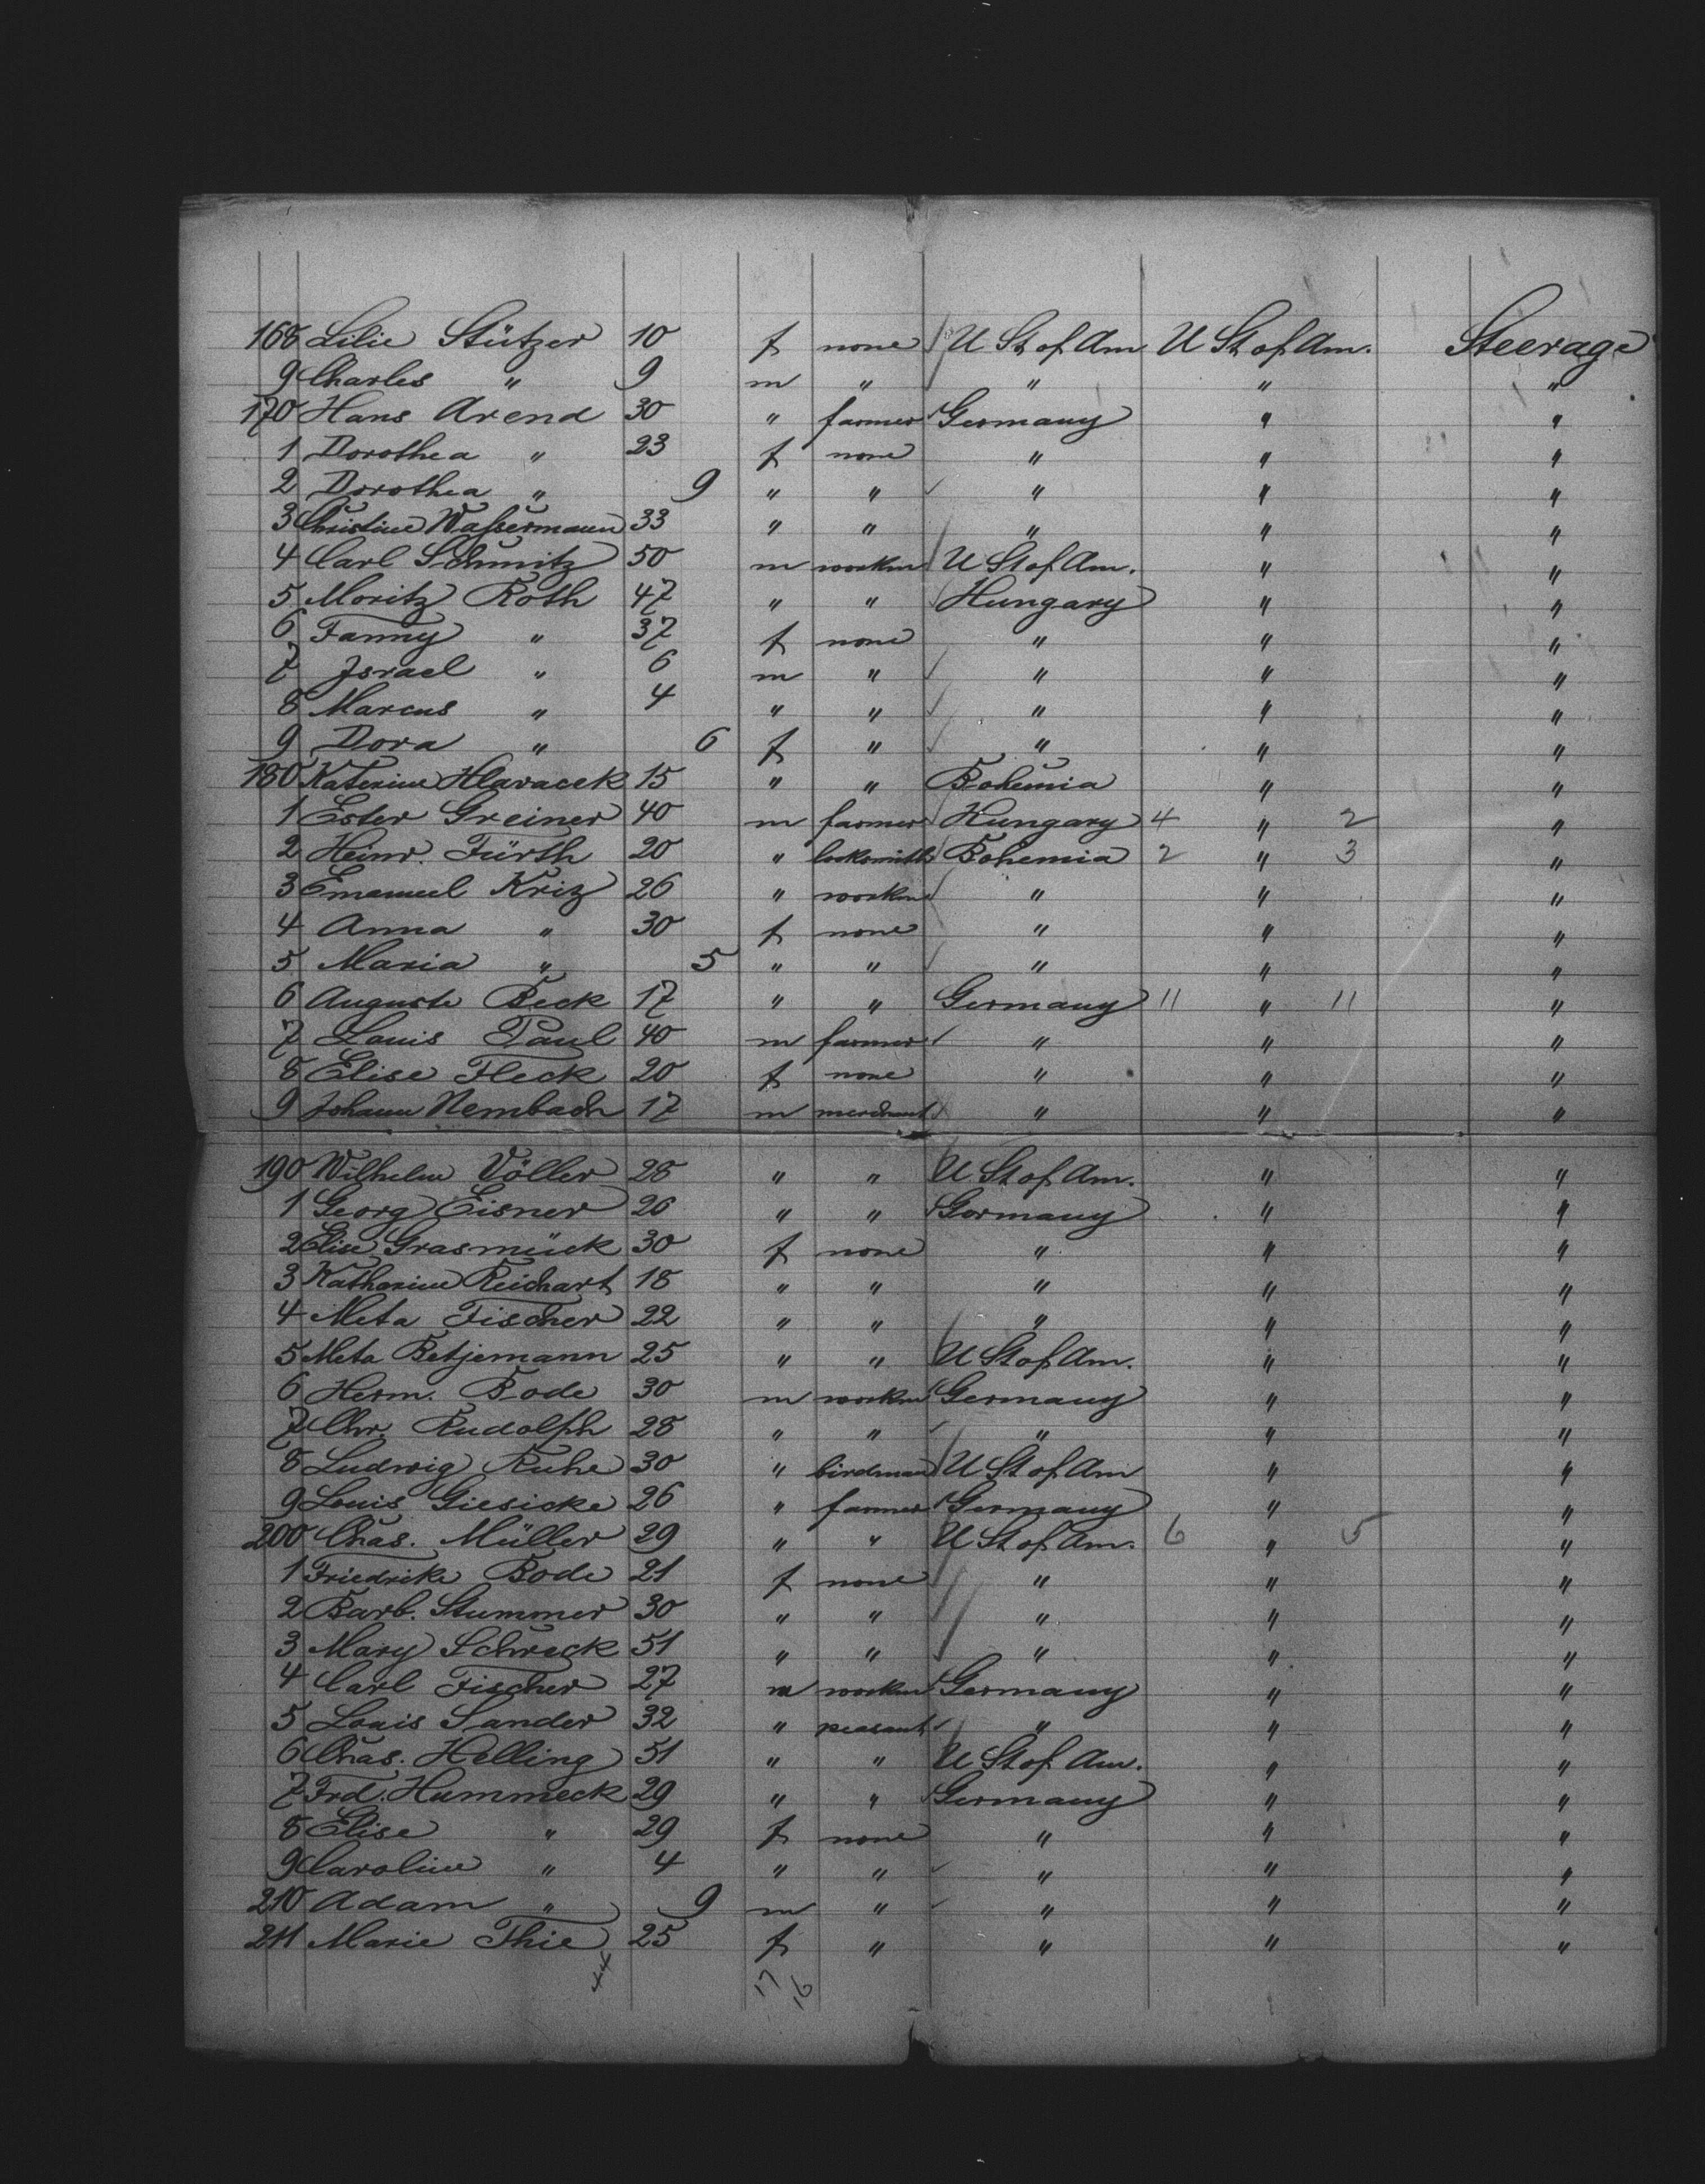 168 Lilie Stützer 10 f none U St of Am U St of Am. Steerage
9 Charles " 9 m " " " "
170 Hans Arend 30 " farmer Germany " "
1 Dorothea " 23 f none " " "
2 Dorothea " 9 " " " " "
3 Christine Waßermann 33 " " " " "
4 Carl Schmitz 50 m workm U St of Am. " "
5 Moritz Roth 47 " " Hungary " "
6 Fanny " 37 f none " " "
7 Israel " 6 m " " " "
8 Marcus " 4 " " " " "
9 Dora " 6 f " " " "
180 Katerine Hlavacek 15 " " Bohemia " "
1 Ester Greiner 40 m farmer Hungary 4 " 2 "
2 Heinr. Fürth 20 " locksmith Bohemia 2 " 3 "
3 Emanuel Kriz 26 " workm " " "
4 Anna " 30 f none " " "
5 Maria " 5 " " " " "
6 Auguste Beck 17 " " Germany 11 " 11 "
7 Louis Paul 40 m farmer " " "
8 Elise Fleck 20 f none " " "
9 Johann Nembach 17 m merchant " " "
190 Wilhelm Völler 28 " " U St of Am. " "
1 Georg Eisner 26 " " Germany " "
2 Elise Grasmück 30 f none " " "
3 Katharine Reichart 18 " " " " "
4 Meta Fischer 22 " " " " "
5 Meta Betjemann 25 " " U St of Am. " "
6 Herm. Bode 30 m workm Germany " "
7 Chr. Rudolph 28 " " " " "
8 Ludwig Ruhe 30 " birdman U St of Am " "
9 Louis Giesicke 26 " farmer Germany " "
200 Chas. Müller 29 " " U St of Am. 6 " 5 "
1 Friedrike Bode 21 f none " " "
2 Barb. Stummer 30 " " " " "
3 Mary Schreck 51 " " " " "
4 Carl Fischer 27 m workm Germany " "
5 Louis Sander 32 " peasant " " "
6 Chas. Helling 51 " " U St of Am. " "
7 Frd. Hummeck 29 " " Germany " "
8 Elise " 29 f none " " "
9 Caroline " 4 " " " " "
210 Adam " 9 m " " " "
211 Marie Thie 25 f " " " "
44 17 16